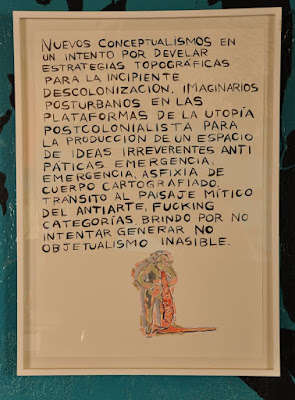 NUEVOS CONCEPTUALISMOS EN
UN INTENTO POR DEVELAR
ESTRATEGIAS TOPOGRÁFICAS
PARA LA INCIPIENTE
DESCOLONIZACIÓN. IMAGINARIOS
POSTURBANOS EN LAS
PLATAFORMAS DE LA UTOPÍA
POSTCOLONIALISTA PARA
LA PRODUCCIÓN DE UN ESPACIO
DE IDEAS IRREVERENTES ANTI
PÁTICAS EMERGENCIA,
EMERGENCIA, ASFIXIA DE
CUERPO CARTOGRAFIADO,
TRÁNSITO AL PAISAJE MÍTICO
DEL ANTIARTE, FUCKING
CATEGORÍAS BRINDO POR NO
INTENTAR GENERAR NO
OBJETUALISMO INASIBLE.